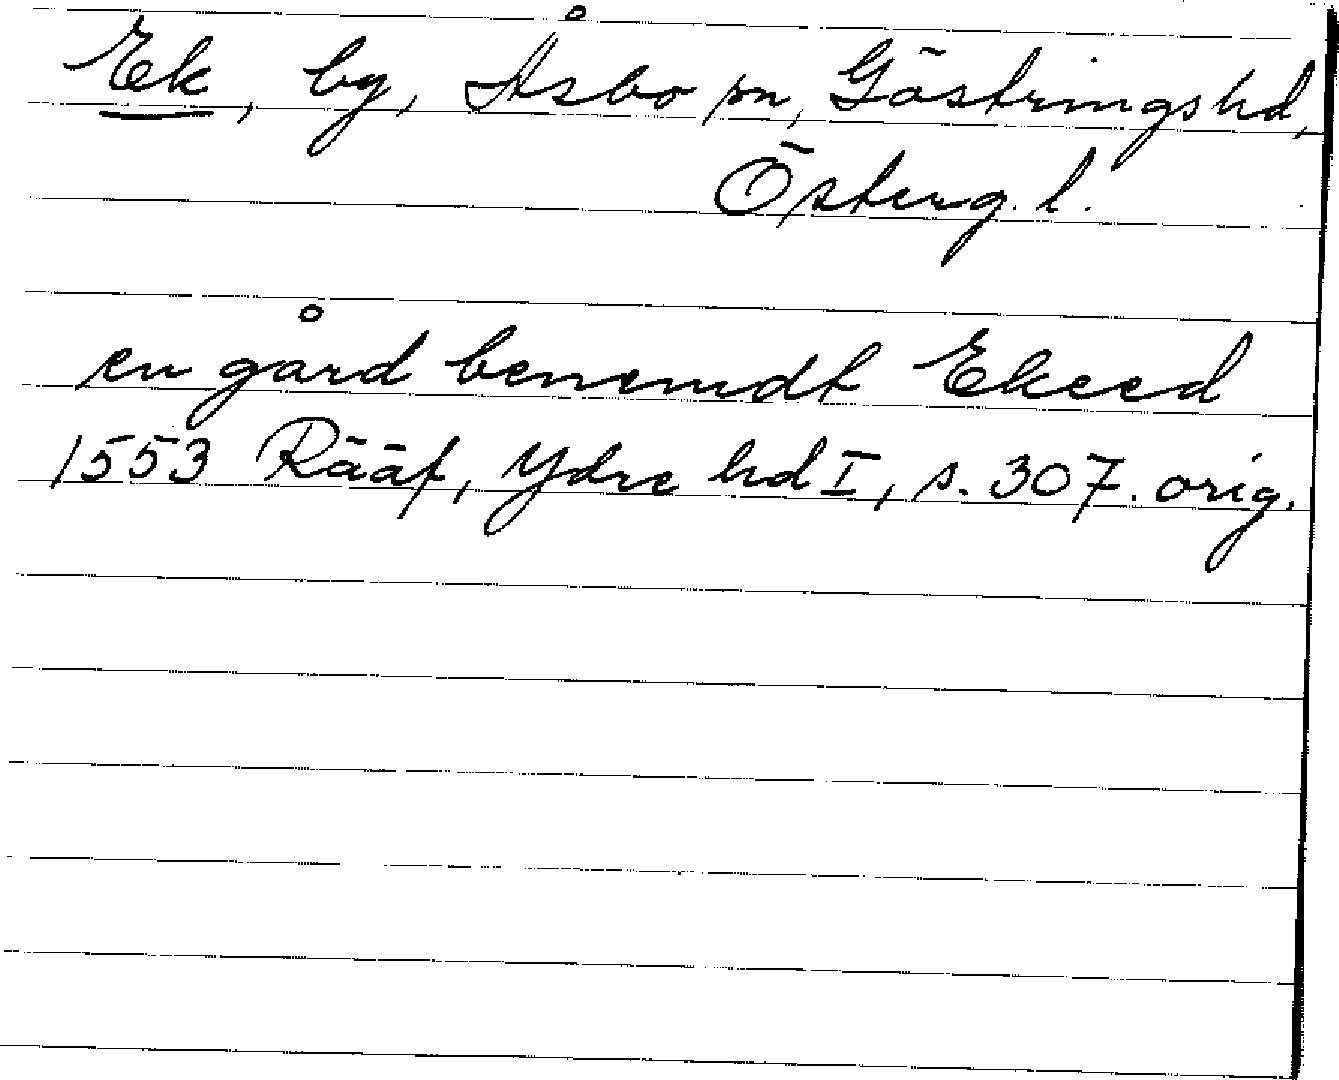 Ek, by, Åsbo sn, Göstrings hd,
Österg. l.
en gård benemdt Ekeed
1553 Rääf, Ydre hd I, s. 307. orig.